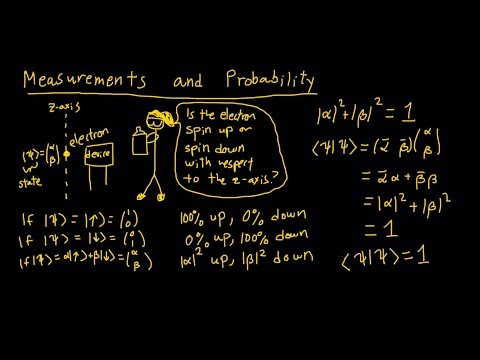 Measurements and Probability
z-axis
electron
|ψ⟩=(α β)
state
device
Is the electron
spin up or
spin down
with respect
to the z-axis?
If |ψ⟩=|↑⟩=(1 0) 100% up, 0% down
If |ψ⟩=|↓⟩=(0 1) 0% up, 100% down
If |ψ⟩=α|↑⟩+β|↓⟩=(α β) |α|² up, |β|² down
|α|²+|β|²=1
⟨ψ|ψ⟩=(ᾱ β̄)(α β)
=ᾱα+β̄β
=|α|²+|β|²
=1
⟨ψ|ψ⟩=1